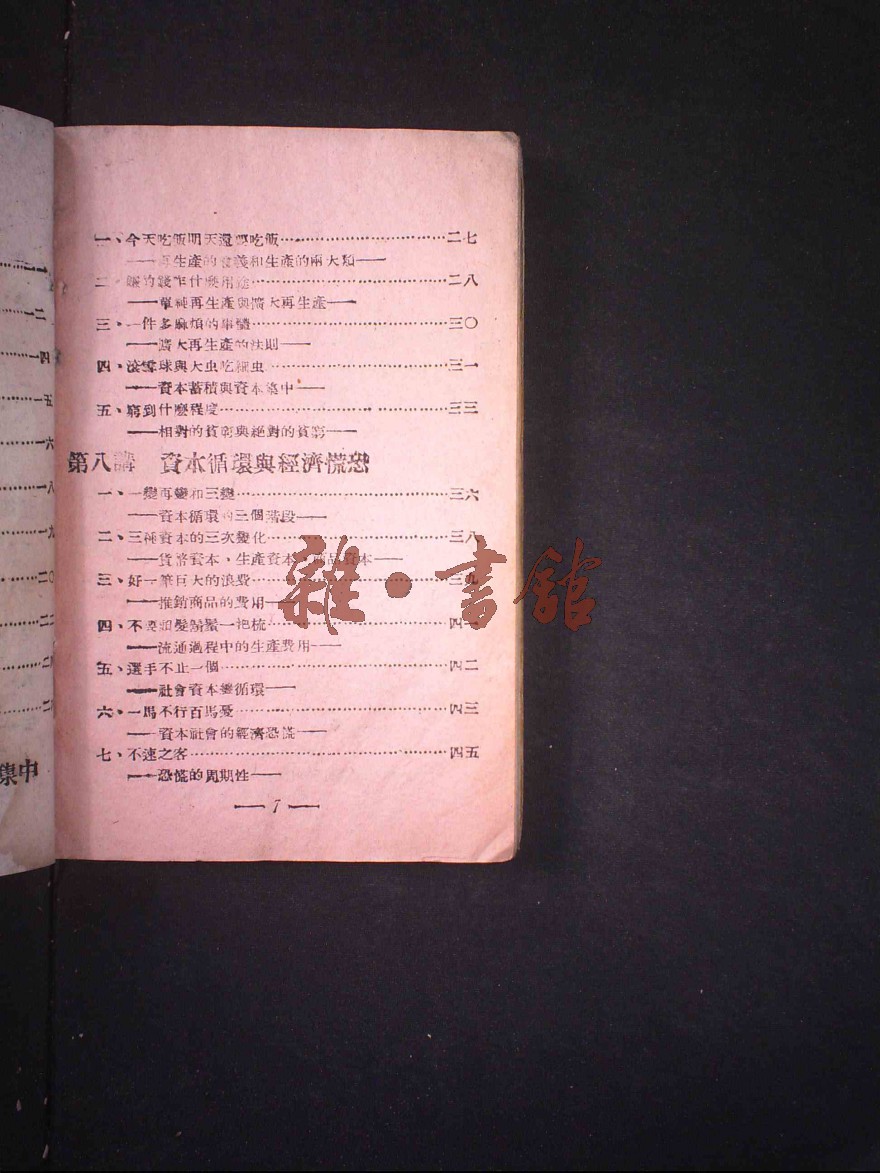 一、今天吃飯明天還要吃飯……二七
——再生產的意義和生產的兩大類——
二、賺的錢作什麼用途……二八
——單純再生產與擴大再生產——
三、一件多麻煩的事體……三〇
——擴大再生產的法則——
四、滾雪球與大虫吃細虫……三一
——資本蓄積與資本集中——
五、窮到什麼程度……三三
——相對的貧窮與絕對的貧窮——
第八講 資本循環與經濟慌恐
一、一變再變和三變……三六
——資本循環的三個階段——
二、三種資本的三次變化……三八
——貨幣資本，生產資本，商品資本——
三、好一筆巨大的浪費……三九
——推銷商品的費用——
四、不要頭髮鬍鬚一把梳……四一
——流通過程中的生產費用——
五、選手不止一個……四二
——社會資本總循環——
六、一馬不行百馬憂……四三
——資本社會的經濟恐慌——
七、不速之客……四五
——恐慌的周期性——
— 7 —
集中
雜·書館